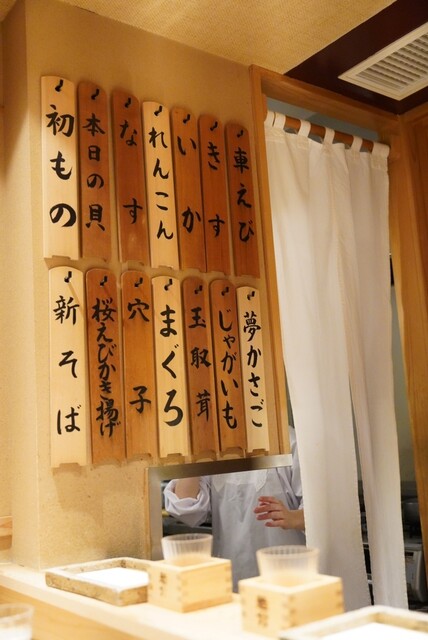 車えび
きす
いか
れんこん
なす
本日の貝
初もの
夢かさご
じゃがいも
玉取茸
まぐろ
穴子
桜えびかき揚げ
新そば